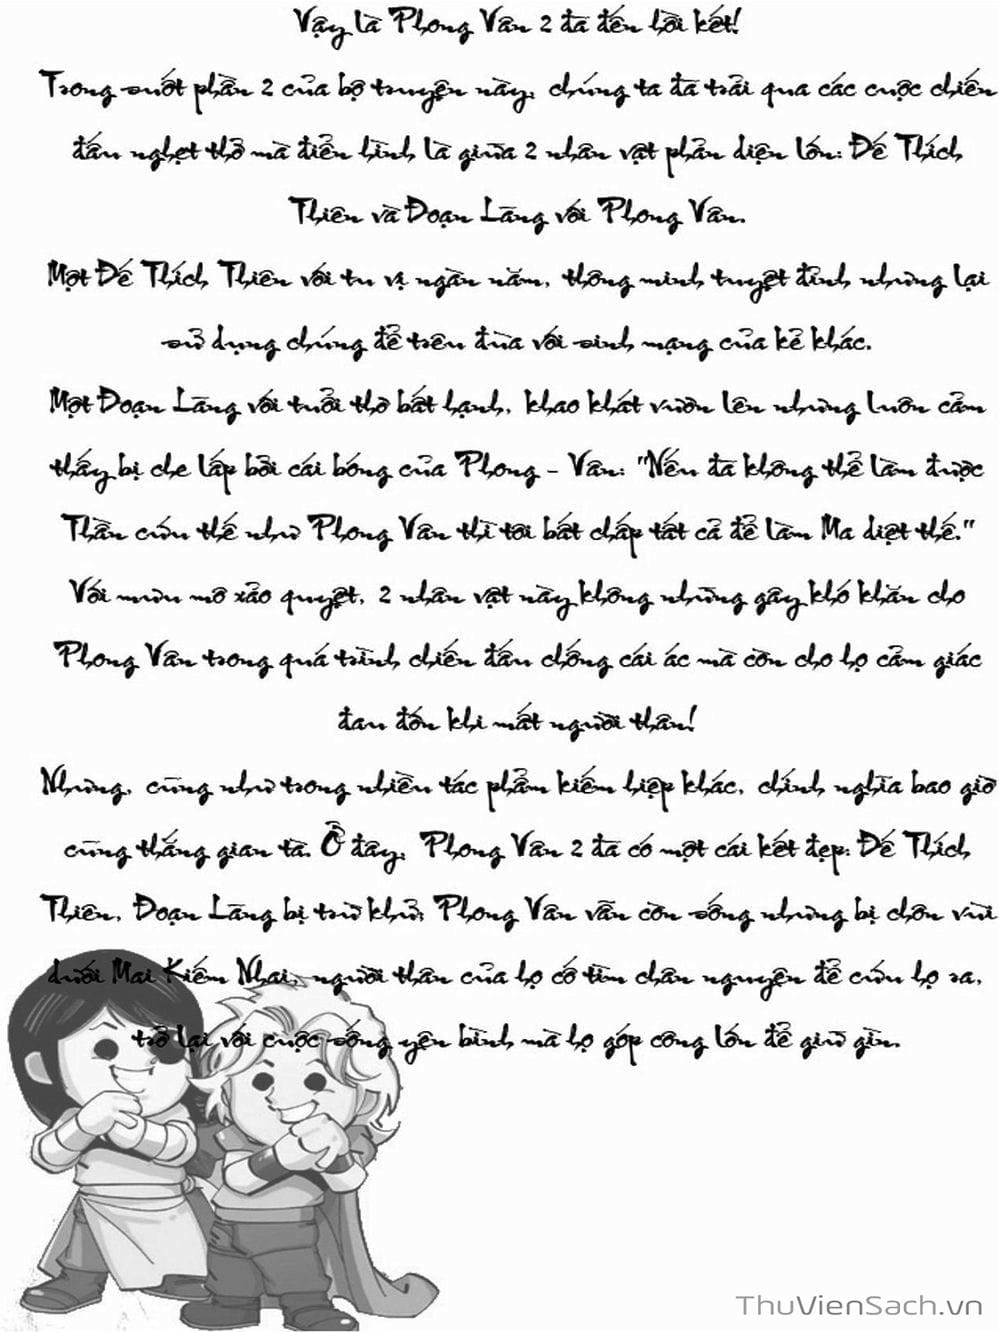 Vậy là Phong Vân 2 đã đến hồi kết!
Trong suốt phần 2 của bộ truyện này, chúng ta đã trải qua các cuộc chiến
đấu nghẹt thở mà điển hình là giữa 2 nhân vật phản diện lớn: Đế Thích
Thiên và Đoạn Lãng với Phong Vân.
Một Đế Thích Thiên với tu vị ngàn năm, thông minh tuyệt đỉnh nhưng lại
sử dụng chúng để trêu đùa với sinh mạng của kẻ khác.
Một Đoạn Lãng với tuổi thơ bất hạnh, khao khát vươn lên nhưng luôn cảm
thấy bị che lấp bởi cái bóng của Phong - Vân: "Nếu đã không thể làm được
Thần cứu thế như Phong Vân thì tôi bất chấp tất cả để làm Ma diệt thế."
Với mưu mô xảo quyệt, 2 nhân vật này không những gây khó khăn cho
Phong Vân trong quá trình chiến đấu chống cái ác mà còn cho họ cảm giác
đau đớn khi mất người thân!
Nhưng, cũng như trong nhiều tác phẩm kiếm hiệp khác, chính nghĩa bao giờ
cũng thắng gian tà. Ở đây, Phong Vân 2 đã có một cái kết đẹp: Đế Thích
Thiên, Đoạn Lãng bị trừ khử; Phong Vân vẫn còn sống nhưng bị chôn vùi
dưới Mai Kiếm Nhai, người thân của họ cố tìm chân nguyện để cứu họ ra,
trở lại với cuộc sống yên bình mà họ góp công lớn để giữ gìn.
ThuVienSach.vn